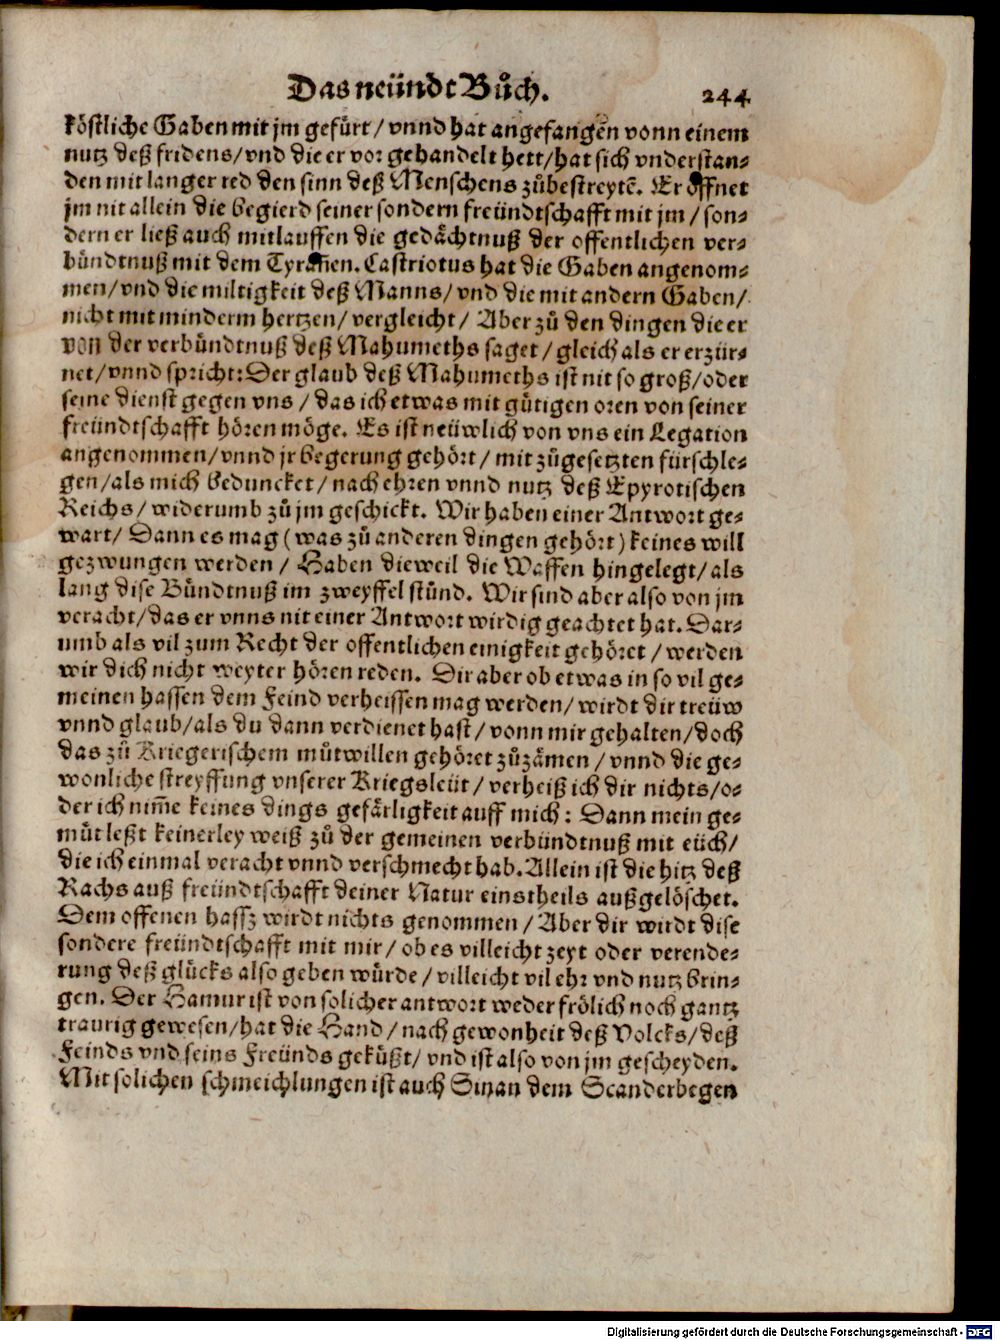 Das neündt Bůch. 244
köstliche Gaben mit jm gefürt / vnnd hat angefangen vonn einem
nutz deß fridens / vnd die er vor gehandelt hett / hat sich vnderstan-
den mit langer red den sinn deß Menschens zůbestreytē. Er öffnet
jm nit allein die begierd seiner sondern freündtschafft mit jm / son-
dern er ließ auch mitlauffen die gedächtnuß der offentlichen ver-
bündtnuß mit dem Tyrañen. Castriotus hat die Gaben angenom-
men / vnd die miltigkeit deß Manns / vnd die mit andern Gaben /
nicht mit minderm hertzen / vergleicht / Aber zů den dingen die er
von der verbündtnuß deß Mahumeths saget / gleich als er erzür-
net / vnnd spricht: Der glaub deß Mahumeths ist nit so groß / oder
seine dienst gegen vns / das ich etwas mit gütigen oren von seiner
freündtschafft hören möge. Es ist neüwlich von vns ein Legation
angenommen / vnnd jr begerung gehört / mit zůgesetzten fürschle-
gen / als mich beduncket / nach ehren vnnd nutz deß Epyrotischen
Reichs / widerumb zů jm geschickt. Wir haben einer Antwort ge-
wart / Dann es mag (was zů anderen dingen gehört) keines will
gezwungen werden / Haben dieweil die Waffen hingelegt / als
lang dise Bündtnuß im zweyffel stünd. Wir sind aber also von jm
veracht / das er vnns nit einer Antwort wirdig geachtet hat. Dar-
umb als vil zum Recht der offentlichen einigkeit gehöret / werden
wir dich nicht weyter hören reden. Dir aber ob etwas in so vil ge-
meinen hassen dem Feind verheissen mag werden / wirdt dir treüw
vnnd glaub / als du dann verdienet hast / vonn mir gehalten / doch
das zů Kriegerischem můtwillen gehöret zůzämen / vnnd die ge-
wonliche streyffung vnserer Kriegsleüt / verheiß ich dir nichts / o-
der ich nim̄e keines dings gefärligkeit auff mich: Dann mein ge-
můt leßt keinerley weiß zů der gemeinen verbündtnuß mit eüch /
die ich einmal veracht vnnd verschmecht hab. Allein ist die hitz deß
Rachs auß freündtschafft deiner Natur einstheils außgelöschet.
Dem offenen hassz wirdt nichts genommen / Aber dir wirdt dise
sondere freündtschafft mit mir / ob es villeicht zeyt oder verende-
rung deß glücks also geben würde / villeicht vil ehr vnd nutz brin-
gen. Der Hamur ist von solicher antwort weder frölich noch gantz
traurig gewesen / hat die Hand / nach gewonheit deß Volcks / deß
Feinds vnd seins Freünds geküßt / vnd ist also von jm gescheyden.
Mit solichen schmeichlungen ist auch Sinan dem Scanderbegen
Digitalisierung gefördert durch die Deutsche Forschungsgemeinschaft - DFG